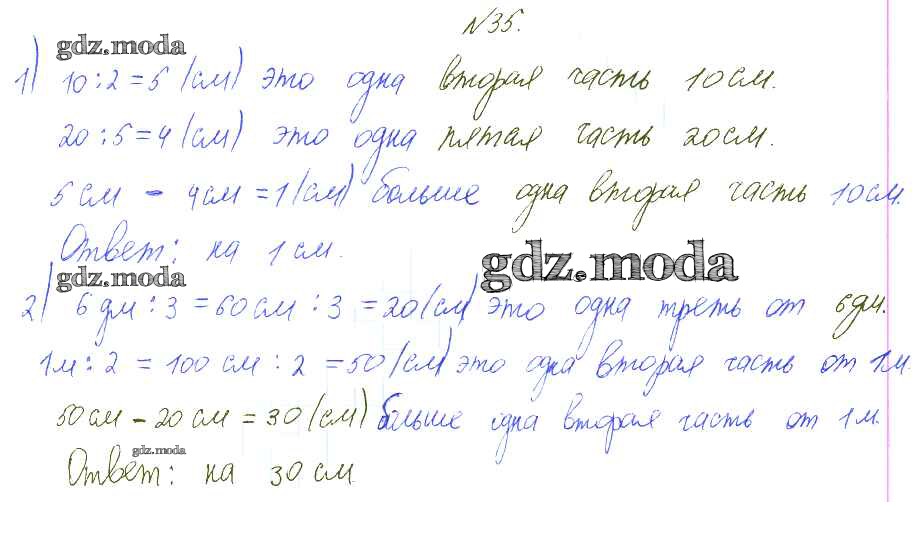 №35.
gdz.moda
1) 10:2=5 (см) это одна вторая часть 10 см.
20:5=4 (см) это одна пятая часть 20 см.
5 см - 4 см = 1 (см) больше одна вторая часть 10 см.
Ответ: на 1 см.
gdz.moda
gdz.moda
2) 6 дм : 3 = 60 см : 3 = 20 (см) это одна треть от 6 дм.
1 м : 2 = 100 см : 2 = 50 (см) это одна вторая часть от 1 м.
50 см - 20 см = 30 (см) больше одна вторая часть от 1 м.
gdz.moda
Ответ: на 30 см